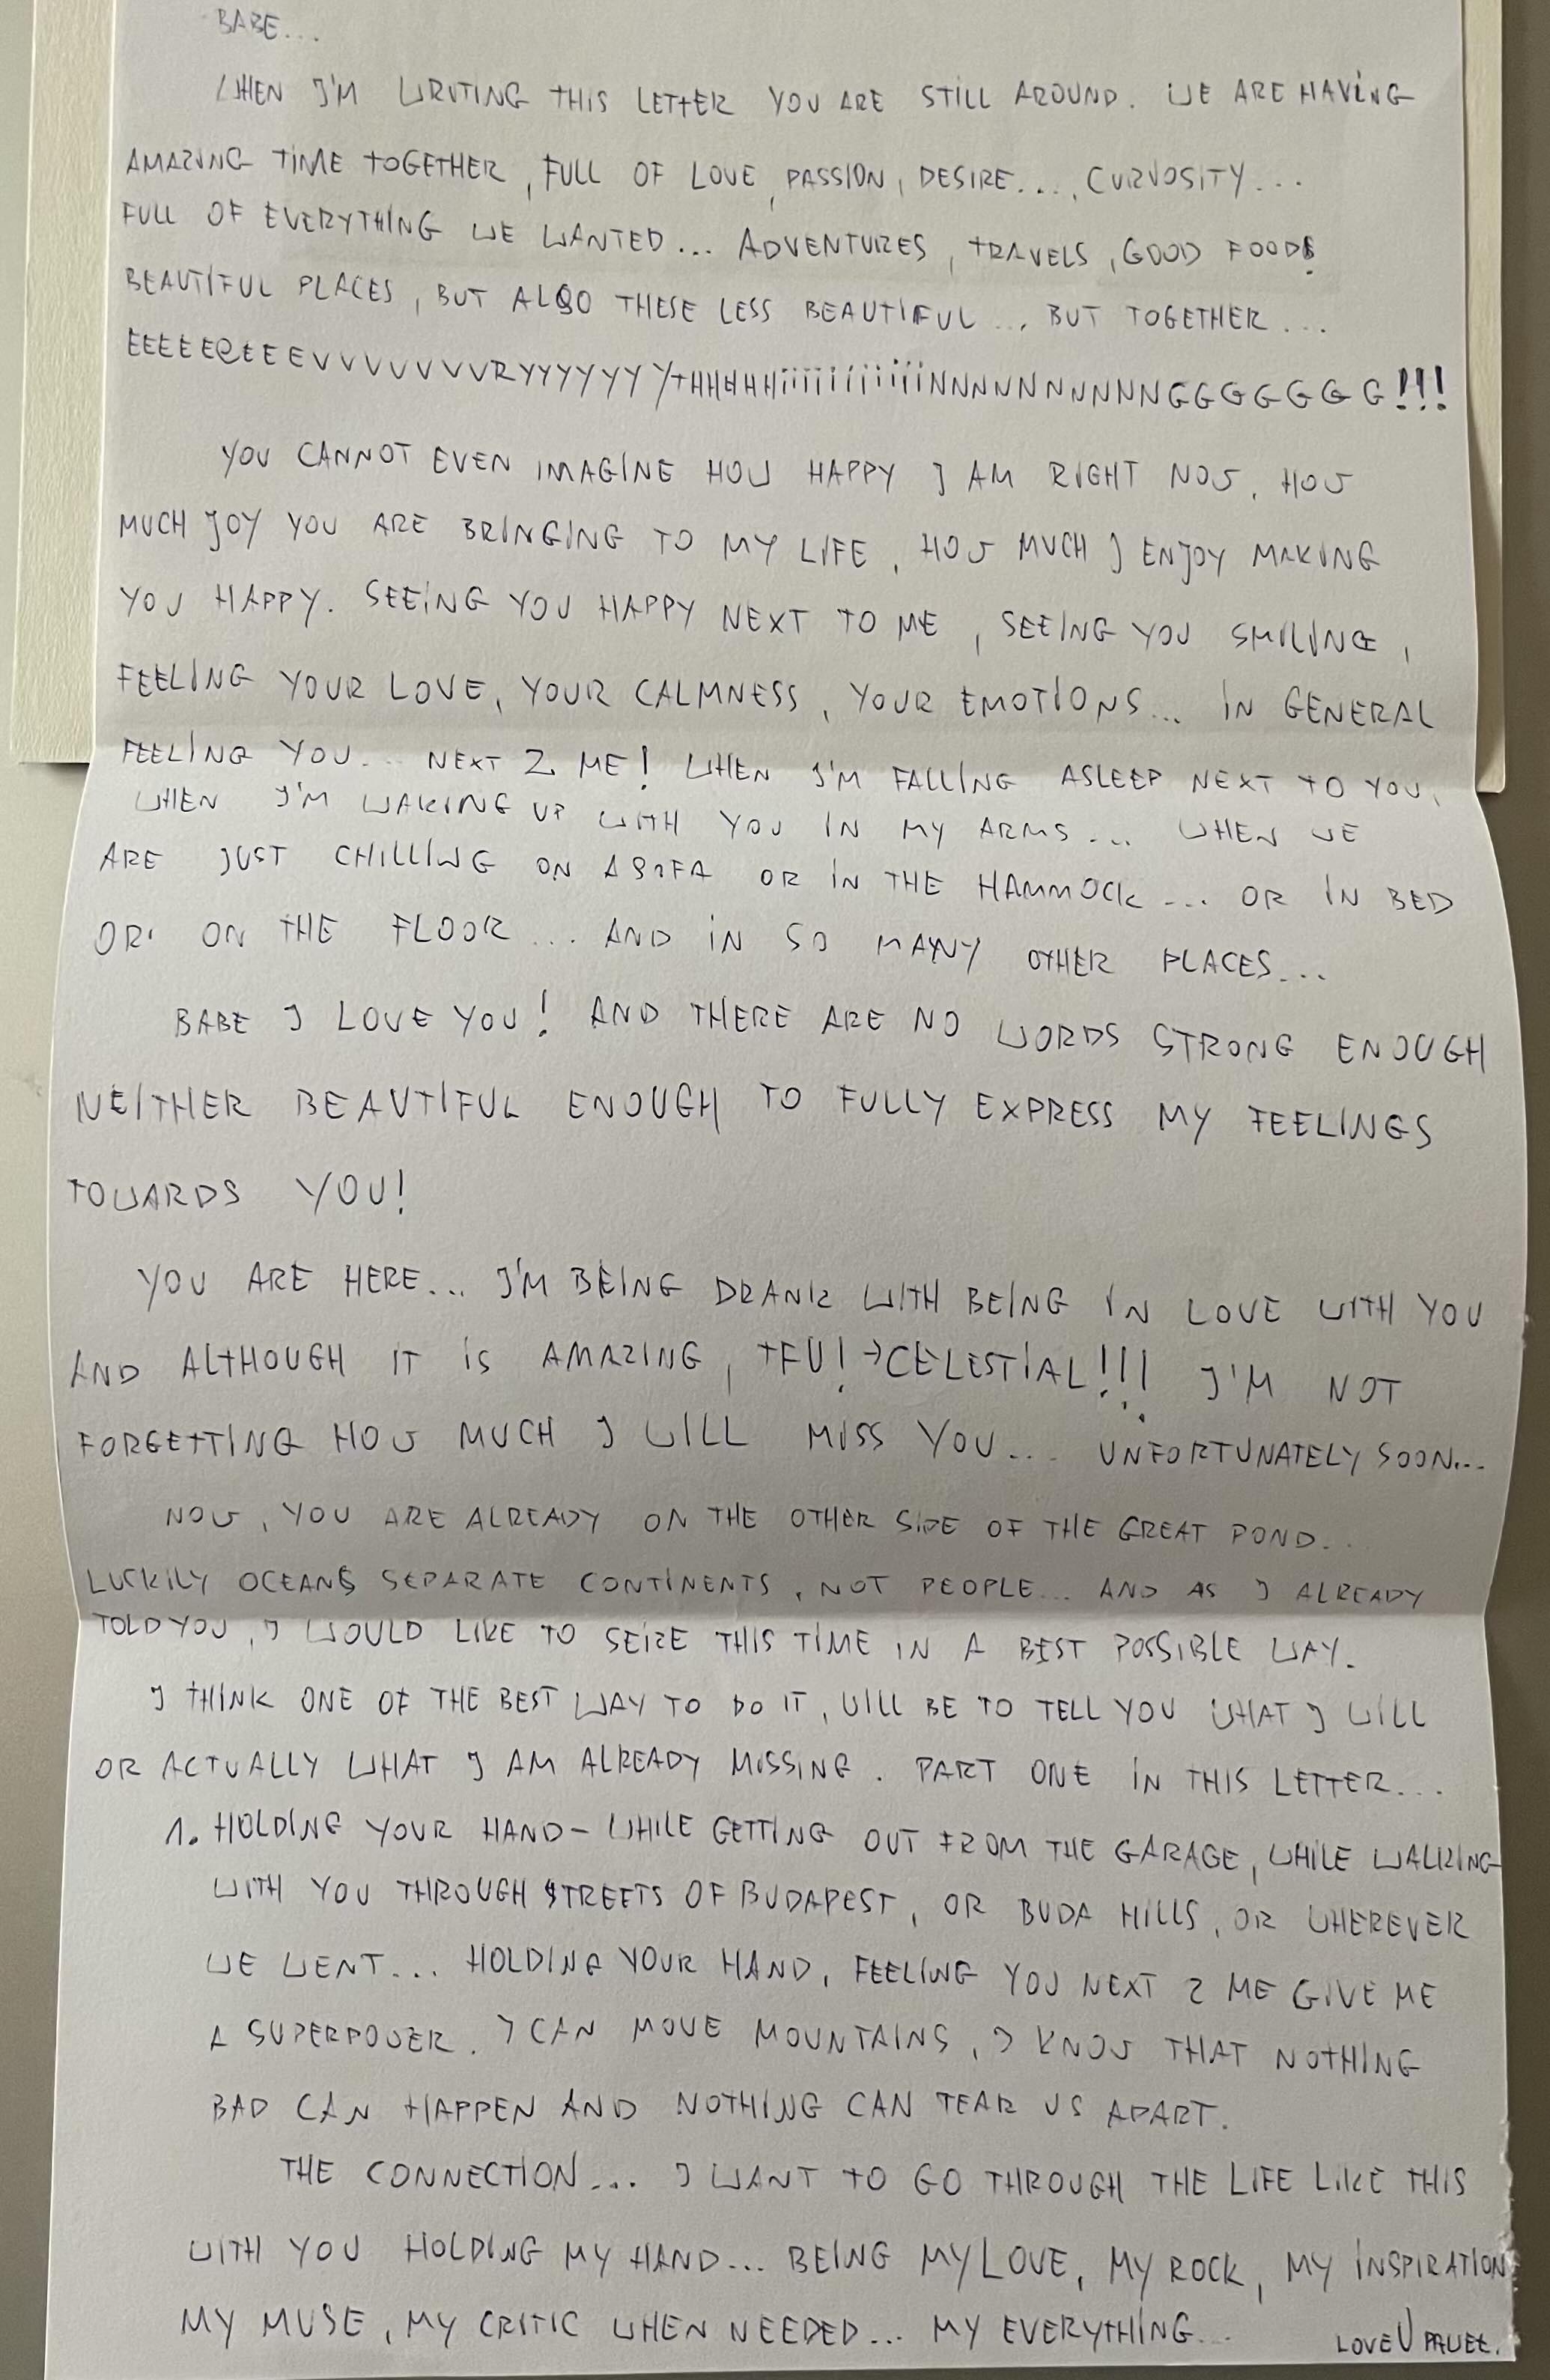 BABE...
WHEN I'M WRITING THIS LETTER YOU ARE STILL AROUND. WE ARE HAVING
AMAZING TIME TOGETHER, FULL OF LOVE, PASSION, DESIRE..., CURIOSITY...
FULL OF EVERYTHING WE WANTED... ADVENTURES, TRAVELS, GOOD FOODS
BEAUTIFUL PLACES, BUT ALSO THESE LESS BEAUTIFUL... BUT TOGETHER...
EEEEEeEEEVVVVVVVVRYYYYYYYTHHHHHiiiiiiiiiiiiiNNNNNNNNNNNGGGGGGG!!!
YOU CANNOT EVEN IMAGINE HOW HAPPY I AM RIGHT NOW, HOW
MUCH JOY YOU ARE BRINGING TO MY LIFE, HOW MUCH I ENJOY MAKING
YOU HAPPY. SEEING YOU HAPPY NEXT TO ME, SEEING YOU SMILING,
FEELING YOUR LOVE, YOUR CALMNESS, YOUR EMOTIONS... IN GENERAL
FEELING YOU... NEXT 2 ME! WHEN I'M FALLING ASLEEP NEXT TO YOU,
WHEN I'M WAKING UP WITH YOU IN MY ARMS... WHEN WE
ARE JUST CHILLING ON A SOFA OR IN THE HAMMOCK... OR IN BED
OR ON THE FLOOR... AND IN SO MANY OTHER PLACES...
BABE I LOVE YOU! AND THERE ARE NO WORDS STRONG ENOUGH
NEITHER BEAUTIFUL ENOUGH TO FULLY EXPRESS MY FEELINGS
TOWARDS YOU!
YOU ARE HERE... I'M BEING DRANK WITH BEING IN LOVE WITH YOU
AND ALTHOUGH IT IS AMAZING, TFU! →CELESTIAL!!! I'M NOT
FORGETTING HOW MUCH I WILL MISS YOU... UNFORTUNATELY SOON...
NOW, YOU ARE ALREADY ON THE OTHER SIDE OF THE GREAT POND...
LUCKILY OCEANS SEPARATE CONTINENTS, NOT PEOPLE... AND AS I ALREADY
TOLD YOU, I WOULD LIKE TO SEIZE THIS TIME IN A BEST POSSIBLE WAY.
I THINK ONE OF THE BEST WAY TO DO IT, WILL BE TO TELL YOU WHAT I WILL
OR ACTUALLY WHAT I AM ALREADY MISSING. PART ONE IN THIS LETTER...
1. HOLDING YOUR HAND - WHILE GETTING OUT FROM THE GARAGE, WHILE WALKING
WITH YOU THROUGH STREETS OF BUDAPEST, OR BUDA HILLS, OR WHEREVER
WE WENT... HOLDING YOUR HAND, FEELING YOU NEXT 2 ME GIVE ME
A SUPERPOWER. I CAN MOVE MOUNTAINS, I KNOW THAT NOTHING
BAD CAN HAPPEN AND NOTHING CAN TEAR US APART.
THE CONNECTION... I WANT TO GO THROUGH THE LIFE LIKE THIS
WITH YOU HOLDING MY HAND... BEING MY LOVE, MY ROCK, MY INSPIRATION,
MY MUSE, MY CRITIC WHEN NEEDED... MY EVERYTHING...
LOVE U